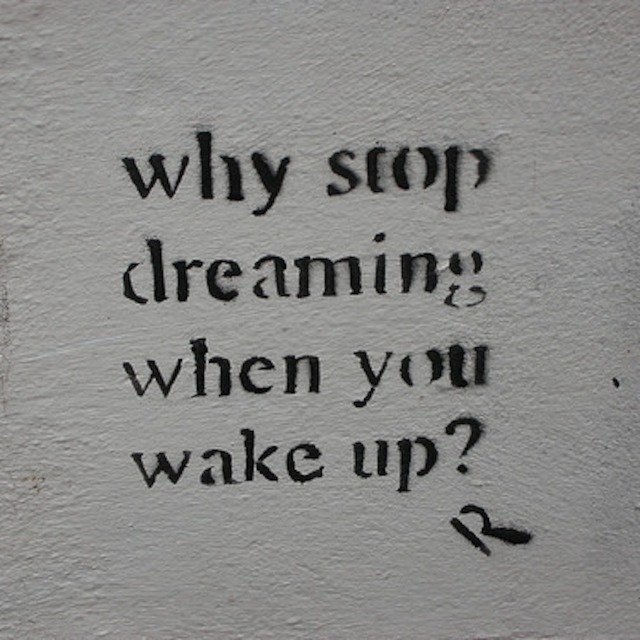 why stop
dreaming
when you
wake up?
R